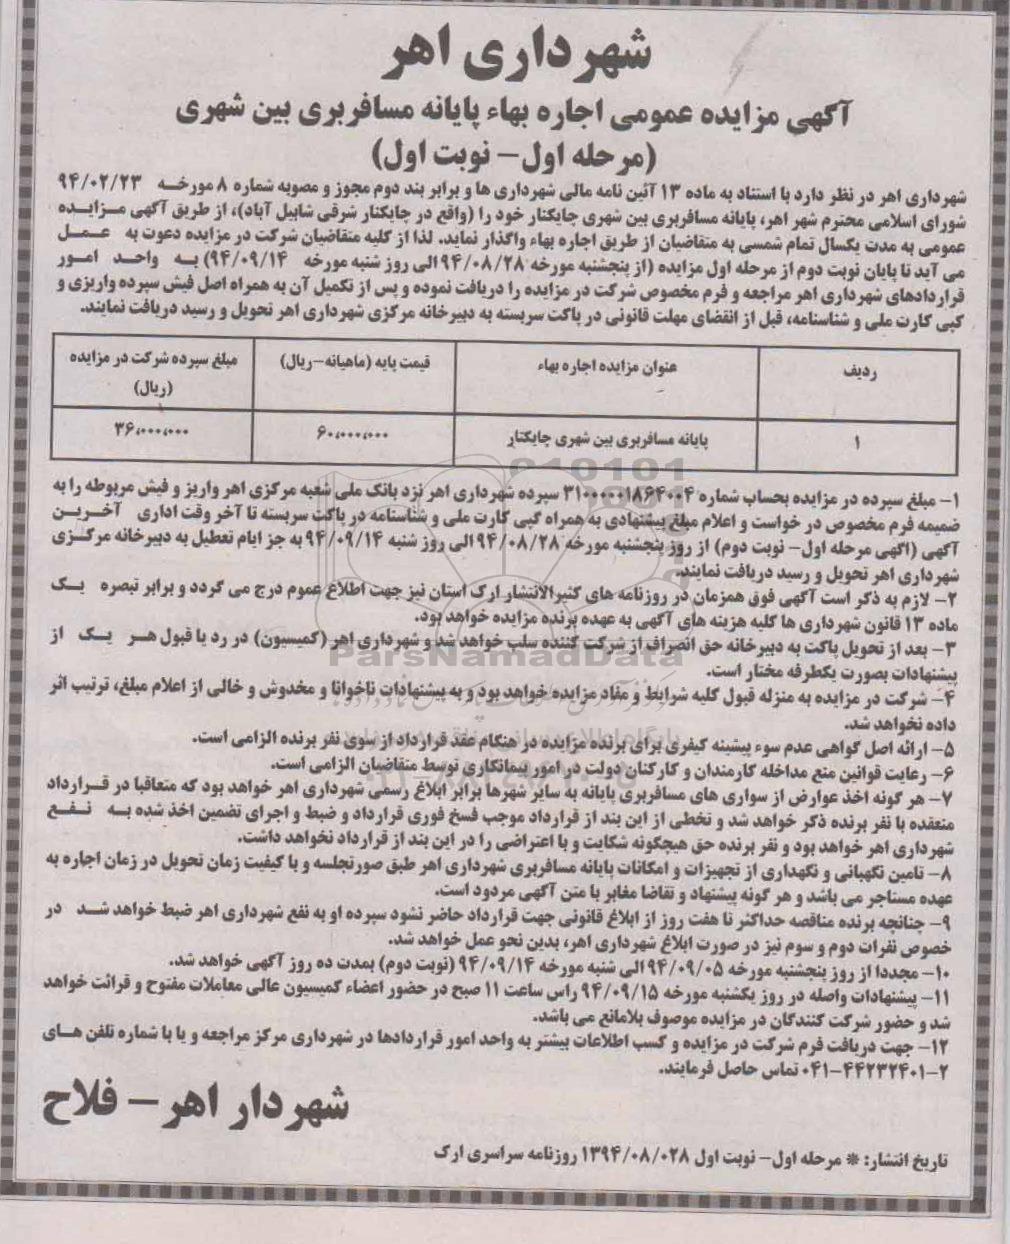 شهرداری اهر
آگهی مزایده عمومی اجاره بهاء پایانه مسافربری بین شهری
(مرحله اول- نوبت اول)
شهرداری اهر در نظر دارد با استناد به ماده ۱۳ آئین نامه مالی شهرداری ها و برابر بند دوم مجوز و مصوبه شماره ۸ مورخه ۹۴/۰۲/۲۳
شورای اسلامی محترم شهر اهر، پایانه مسافربری بین شهری چایکنار خود را (واقع در چایکنار شرقی شاپیل آباد)، از طریق آگهی مزایده
عمومی به مدت یکسال تمام شمسی به متقاضیان از طریق اجاره بهاء واگذار نماید. لذا از کلیه متقاضیان شرکت در مزایده دعوت به عمل
می آید تا پایان نوبت دوم از مرحله اول مزایده (از پنجشنبه مورخه ۹۴/۰۸/۲۸ الی روز شنبه مورخه ۹۴/۰۹/۱۴) به واحد امور
قراردادهای شهرداری اهر مراجعه و فرم مخصوص شرکت در مزایده را دریافت نموده و پس از تکمیل آن به همراه اصل فیش سپرده واریزی و
کپی کارت ملی و شناسنامه، قبل از انقضای مهلت قانونی در پاکت سربسته به دبیرخانه مرکزی شهرداری اهر تحویل و رسید دریافت نمایند.
ردیف عنوان مزایده اجاره بهاء قیمت پایه (ماهیانه-ریال) مبلغ سپرده شرکت در مزایده
(ریال)
۱ پایانه مسافربری بین شهری چایکنار ۶۰،۰۰۰،۰۰۰ ۳۶،۰۰۰،۰۰۰
۱- مبلغ سپرده در مزایده بحساب شماره ۳۱۰۰۰۰۰۱۸۶۴۰۰۴ سپرده شهرداری اهر نزد بانک ملی شعبه مرکزی اهر واریز و فیش مربوطه را به
ضمیمه فرم مخصوص در خواست و اعلام مبلغ پیشنهادی به همراه کپی کارت ملی و شناسنامه در پاکت سربسته تا آخر وقت اداری آخرین
آگهی (اگهی مرحله اول- نوبت دوم) از روز پنجشنبه مورخه ۹۴/۰۸/۲۸ الی روز شنبه ۹۴/۰۹/۱۴ به جز ایام تعطیل به دبیرخانه مرکزی
شهرداری اهر تحویل و رسید دریافت نمایند.
۲- لازم به ذکر است آگهی فوق همزمان در روزنامه های کثیرالانتشار ارک استان نیز جهت اطلاع عموم درج می گردد و برابر تبصره یک
ماده ۱۳ قانون شهرداری ها کلیه هزینه های آگهی به عهده برنده مزایده خواهد بود.
۳- بعد از تحویل پاکت به دبیرخانه حق انصراف از شرکت کننده سلب خواهد شد و شهرداری اهر (کمیسیون) در رد یا قبول هر یک از
پیشنهادات بصورت یکطرفه مختار است.
۴- شرکت در مزایده به منزله قبول کلیه شرایط و مفاد مزایده خواهد بود و به پیشنهادات ناخوانا و مخدوش و خالی از اعلام مبلغ، ترتیب اثر
داده نخواهد شد.
۵- ارائه اصل گواهی عدم سوء پیشینه کیفری برای برنده مزایده در هنگام عقد قرارداد از سوی نفر برنده الزامی است.
۶- رعایت قوانین منع مداخله کارمندان و کارکنان دولت در امور پیمانکاری توسط متقاضیان الزامی است.
۷- هر گونه اخذ عوارض از سواری های مسافربری پایانه به سایر شهرها برابر ابلاغ رسمی شهرداری اهر خواهد بود که متعاقبا در قرارداد
منعقده با نفر برنده ذکر خواهد شد و تخطی از این بند از قرارداد موجب فسخ فوری قرارداد و ضبط و اجرای تضمین اخذ شده به نفع
شهرداری اهر خواهد بود و نفر برنده حق هیچگونه شکایت و یا اعتراضی را در این بند از قرارداد نخواهد داشت.
۸- تامین نگهبانی و نگهداری از تجهیزات و امکانات پایانه مسافربری شهرداری اهر طبق صورتجلسه و با کیفیت زمان تحویل در زمان اجاره به
عهده مستاجر می باشد و هر گونه پیشنهاد و تقاضا مغایر با متن آگهی مردود است.
۹- چنانچه برنده مناقصه حداکثر تا هفت روز از ابلاغ قانونی جهت قرارداد حاضر نشود سپرده او به نفع شهرداری اهر ضبط خواهد شد در
خصوص نفرات دوم و سوم نیز در صورت ابلاغ شهرداری اهر، بدین نحو عمل خواهد شد.
۱۰- مجددا از روز پنجشنبه مورخه ۹۴/۰۹/۰۵ الی شنبه مورخه ۹۴/۰۹/۱۴ (نوبت دوم) بمدت ده روز آگهی خواهد شد.
۱۱- پیشنهادات واصله در روز یکشنبه مورخه ۹۴/۰۹/۱۵ راس ساعت ۱۱ صبح در حضور اعضاء کمیسیون عالی معاملات مفتوح و قرائت خواهد
شد و حضور شرکت کنندگان در مزایده موصوف بلامانع می باشد.
۱۲- جهت دریافت فرم شرکت در مزایده و کسب اطلاعات بیشتر به واحد امور قراردادها در شهرداری مرکز مراجعه و یا با شماره تلفن های
۰۴۱-۴۴۲۳۲۴۰۱-۲ تماس حاصل فرمایند.
شهردار اهر - فلاح
تاریخ انتشار: * مرحله اول- نوبت اول ۱۳۹۴/۰۸/۰۲۸ روزنامه سراسری ارک
ParsNamadData